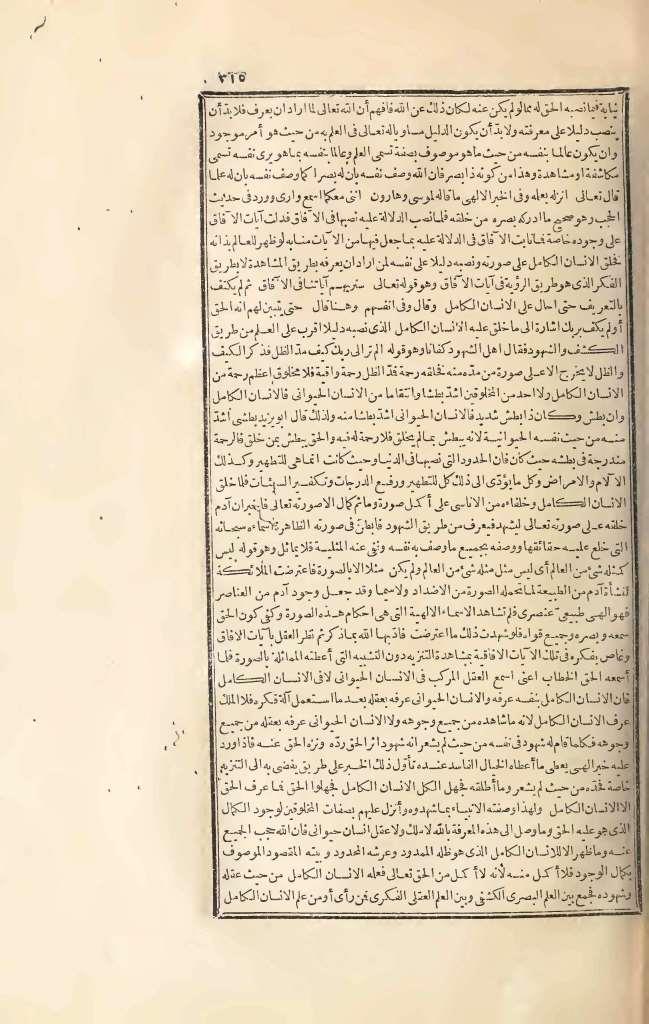 ٣١٥
نيابة فيما نصبه الحق له مما لو لم يكن عنه لكان ذلك عن الله فافهم أن الله تعالى لما اراد ان يعرف فلا بد أن
ينصب دليلا على معرفته ولا بد أن يكون الدليل مساويا له تعالى فى العلم به من حيث هو أمر موجود
وان يكون عالما بنفسه من حيث ما هو موصوف بصفة تسمى العلم وعالما بنفسه بما هو يرى نفسه تسمى
مكاشفة او مشاهدة وهذا من كونه ذا بصر فان الله وصف نفسه بان له بصرا كما وصف نفسه بان له علما
قال تعالى انزله بعلمه وفى الخبر الالهى ما قاله لموسى وهارون اننى معكما اسمع وارى وورد فى حديث
الحجب وهو صحيح ما ادركه بصره من خلقه فلما نصب الدلالة عليه نصبها فى الآفاق فدلت آيات الآفاق
على وجوده خاصة فما نابت الآفاق فى الدلالة عليه بما جعل فيها من الآيات منابه لو ظهر للعالم بذاته
فخلق الانسان الكامل على صورته ونصبه دليلا على نفسه لمن اراد ان يعرفه بطريق المشاهدة لا بطريق
الفكر الذى هو طريق الرؤية فى آيات الآفاق وهو قوله تعالى سنريهم آياتنا فى الآفاق ثم لم يكتف
بالتعريف حتى احال على الانسان الكامل وقال وفى انفسهم وهنا قال حتى يتبين لهم انه الحق
أولم يكف بربك اشارة الى ما خلق عليه الانسان الكامل الذى نصبه دليلا اقرب على العلم من طريق
الكشف والشهود فقال اهل الشهود كفانا وهو قوله الم تر الى ربك كيف مد الظل فذكر الكيف
والظل لا يخرج الا على صورة من مده منه فخلقه رحمة فمد الظل رحمة واقية فلا مخلوق اعظم رحمة من
الانسان الكامل ولا احد من المخلوقين اشد بطشا وانتقاما من الانسان الحيوانى فالانسان الكامل
وان بطش وكان ذا بطش شديد فالانسان الحيوانى اشد بطشا منه ولذلك قال ابو يزيد بطشى أشد
منه من حيث نفسه الحيوانية لانه يبطش بما لم يخلق فلا رحمة له فيه والحق يبطش بمن خلق فالرحمة
مندرجة فى بطشه حيث كان فان الحدود التى نصبها فى الدنيا وحيث كانت انما هى للتطهير وكذلك
الآلام والامراض وكل ما يؤدى الى ذلك كل للتطهير ورفع الدرجات وتكفير السيئات فلما خلق
الانسان الكامل وخلفاءه من الاناسى على أكمل صورة وما ثم كمال الا صورته تعالى فاخبر ان آدم
خلقه على صورته تعالى ليشهد فيعرف من طريق الشهود فابطن فى صورته الظاهرة اسماءه سبحانه
التى خلع عليه حقائقها ووصفه بجميع ما وصف به نفسه ونفى عنه المثلية فلا يماثل وهو قوله ليس
كمثله شئ من العالم أى ليس مثل مثله شئ من العالم ولم يكن مثلا الا بالصورة فاعترضت الملائكة
لنشأة آدم من الطبيعة لما تحمله الصورة من الاضداد ولا سيما وقد جعل وجود آدم من العناصر
فهو الهى طبيعى عنصرى فلم تشاهد الاسماء الالهية التى هى احكام هذه الصورة وكنى كون الحق
سمعه وبصره وجميع قواه فلو شهدت ذلك ما اعترضت فأدبها الله بما ذكر ثم نظر العقل بآيات الآفاق
وغاص بفكره فى تلك الآيات الآفاقية بمشاهدة التنزيه دون التشبيه التى أعطته المماثلة بالصورة فلما
أسمعه الحق الخطاب اعنى اسمع العقل المركب فى الانسان الحيوانى لا فى الانسان الكامل
فان الانسان الكامل بنفسه عرفه والانسان الحيوانى عرفه بعقله بعد ما استعمل آلة فكره فلا الملك
عرف الانسان الكامل لانه ما شاهده من جميع وجوهه ولا الانسان الحيوانى عرفه بعقله من جميع
وجوهه فكلما قام له شهود فى نفسه من حيث لم يشعر انه شهود اثر الحق رده ونزه الحق عنه فاذا ورد
عليه خبر الهى يعطى ما أعطاه الخيال الفاسد عنده تأول ذلك الخبر على طريق يفضى به الى التنزيه
خاصة فحده من حيث لم يشعر وما أطلقه فجهل الكل الانسان الكامل فجهلوا الحق فما عرف الحق
الا الانسان الكامل ولهذا وصفته الانبياء بما شهدوه وأنزل عليهم بصفات المخلوقين لوجود الكمال
الذى هو عليه الحق وما وصل الى هذه المعرفة بالله لا ملك ولا عقل انسان حيوانى فان الله حجب الجميع
عنه وما ظهر الا للانسان الكامل الذى هو ظله الممدود وعرشه المحدود وبيته المقصود الموصوف
بكمال الوجود فلا أكمل منه لأنه لا أكمل من الحق تعالى فعلمه الانسان الكامل من حيث عقله
وشهوده فجمع بين العلم البصرى الكشفى وبين العلم العقلى الفكرى فمن رأى أو من علم الانسان الكامل